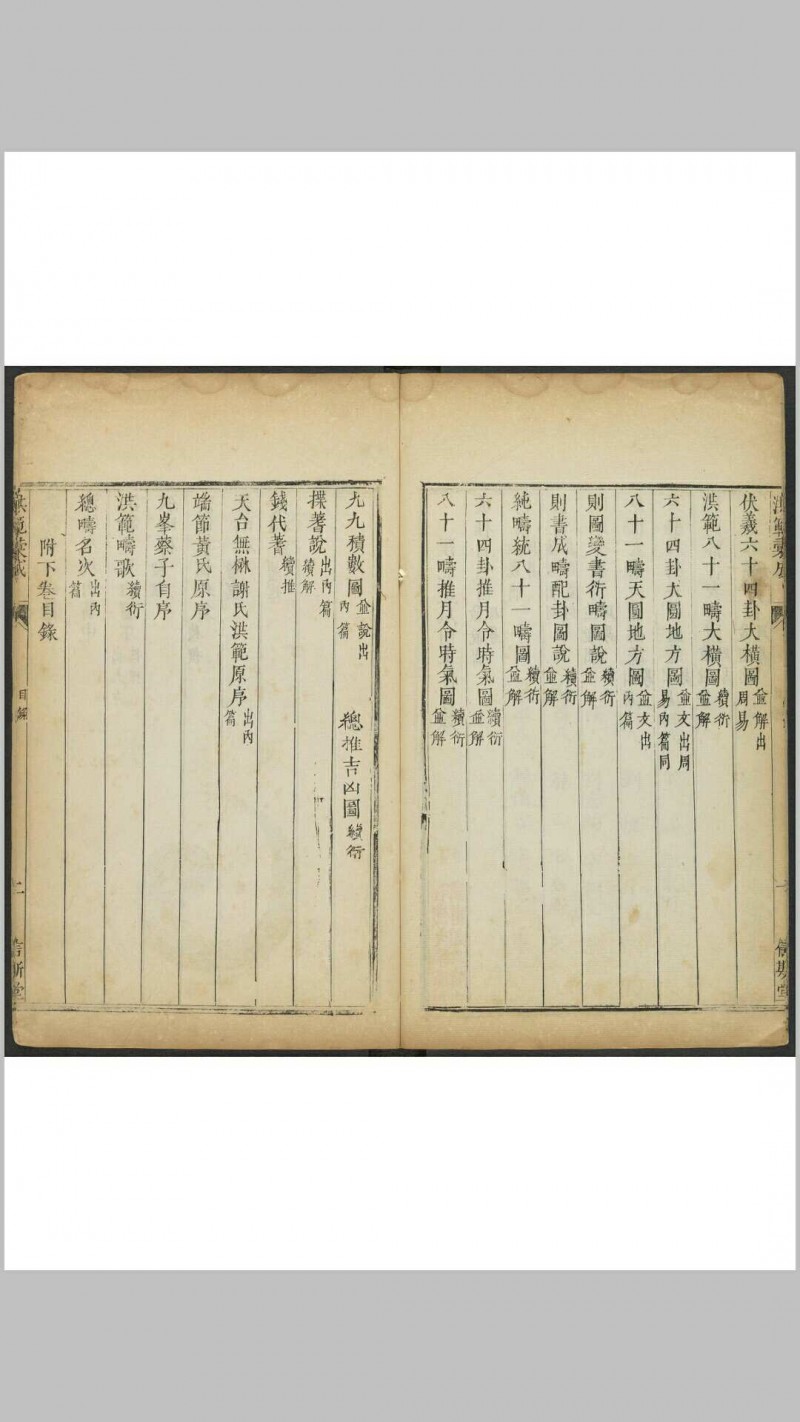 伏羲六十四卦大橫圖 並解出周易
洪範八十一疇大橫圖 續衍並解
六十四卦大圓地方圖 並文出周易內篇同
八十一疇天圓地方圖 並文出內篇
則圖變書衍疇圖說 續衍並解
則書成疇配卦圖說 續衍並解
純疇統八十一疇圖 續衍並解
六十四卦推月令時氣圖 續衍並解
八十一疇推月令時氣圖 續衍並解
九九積數圖 並說出內篇 總推吉凶圖 續衍
揲蓍說 出內篇續解
錢代蓍 續推
天台無楙謝氏洪範原序 出內篇
端節黃氏原序
九峯蔡子自序
洪範疇歌 續衍
總疇名次 出內篇
附下卷目錄
目錄 二